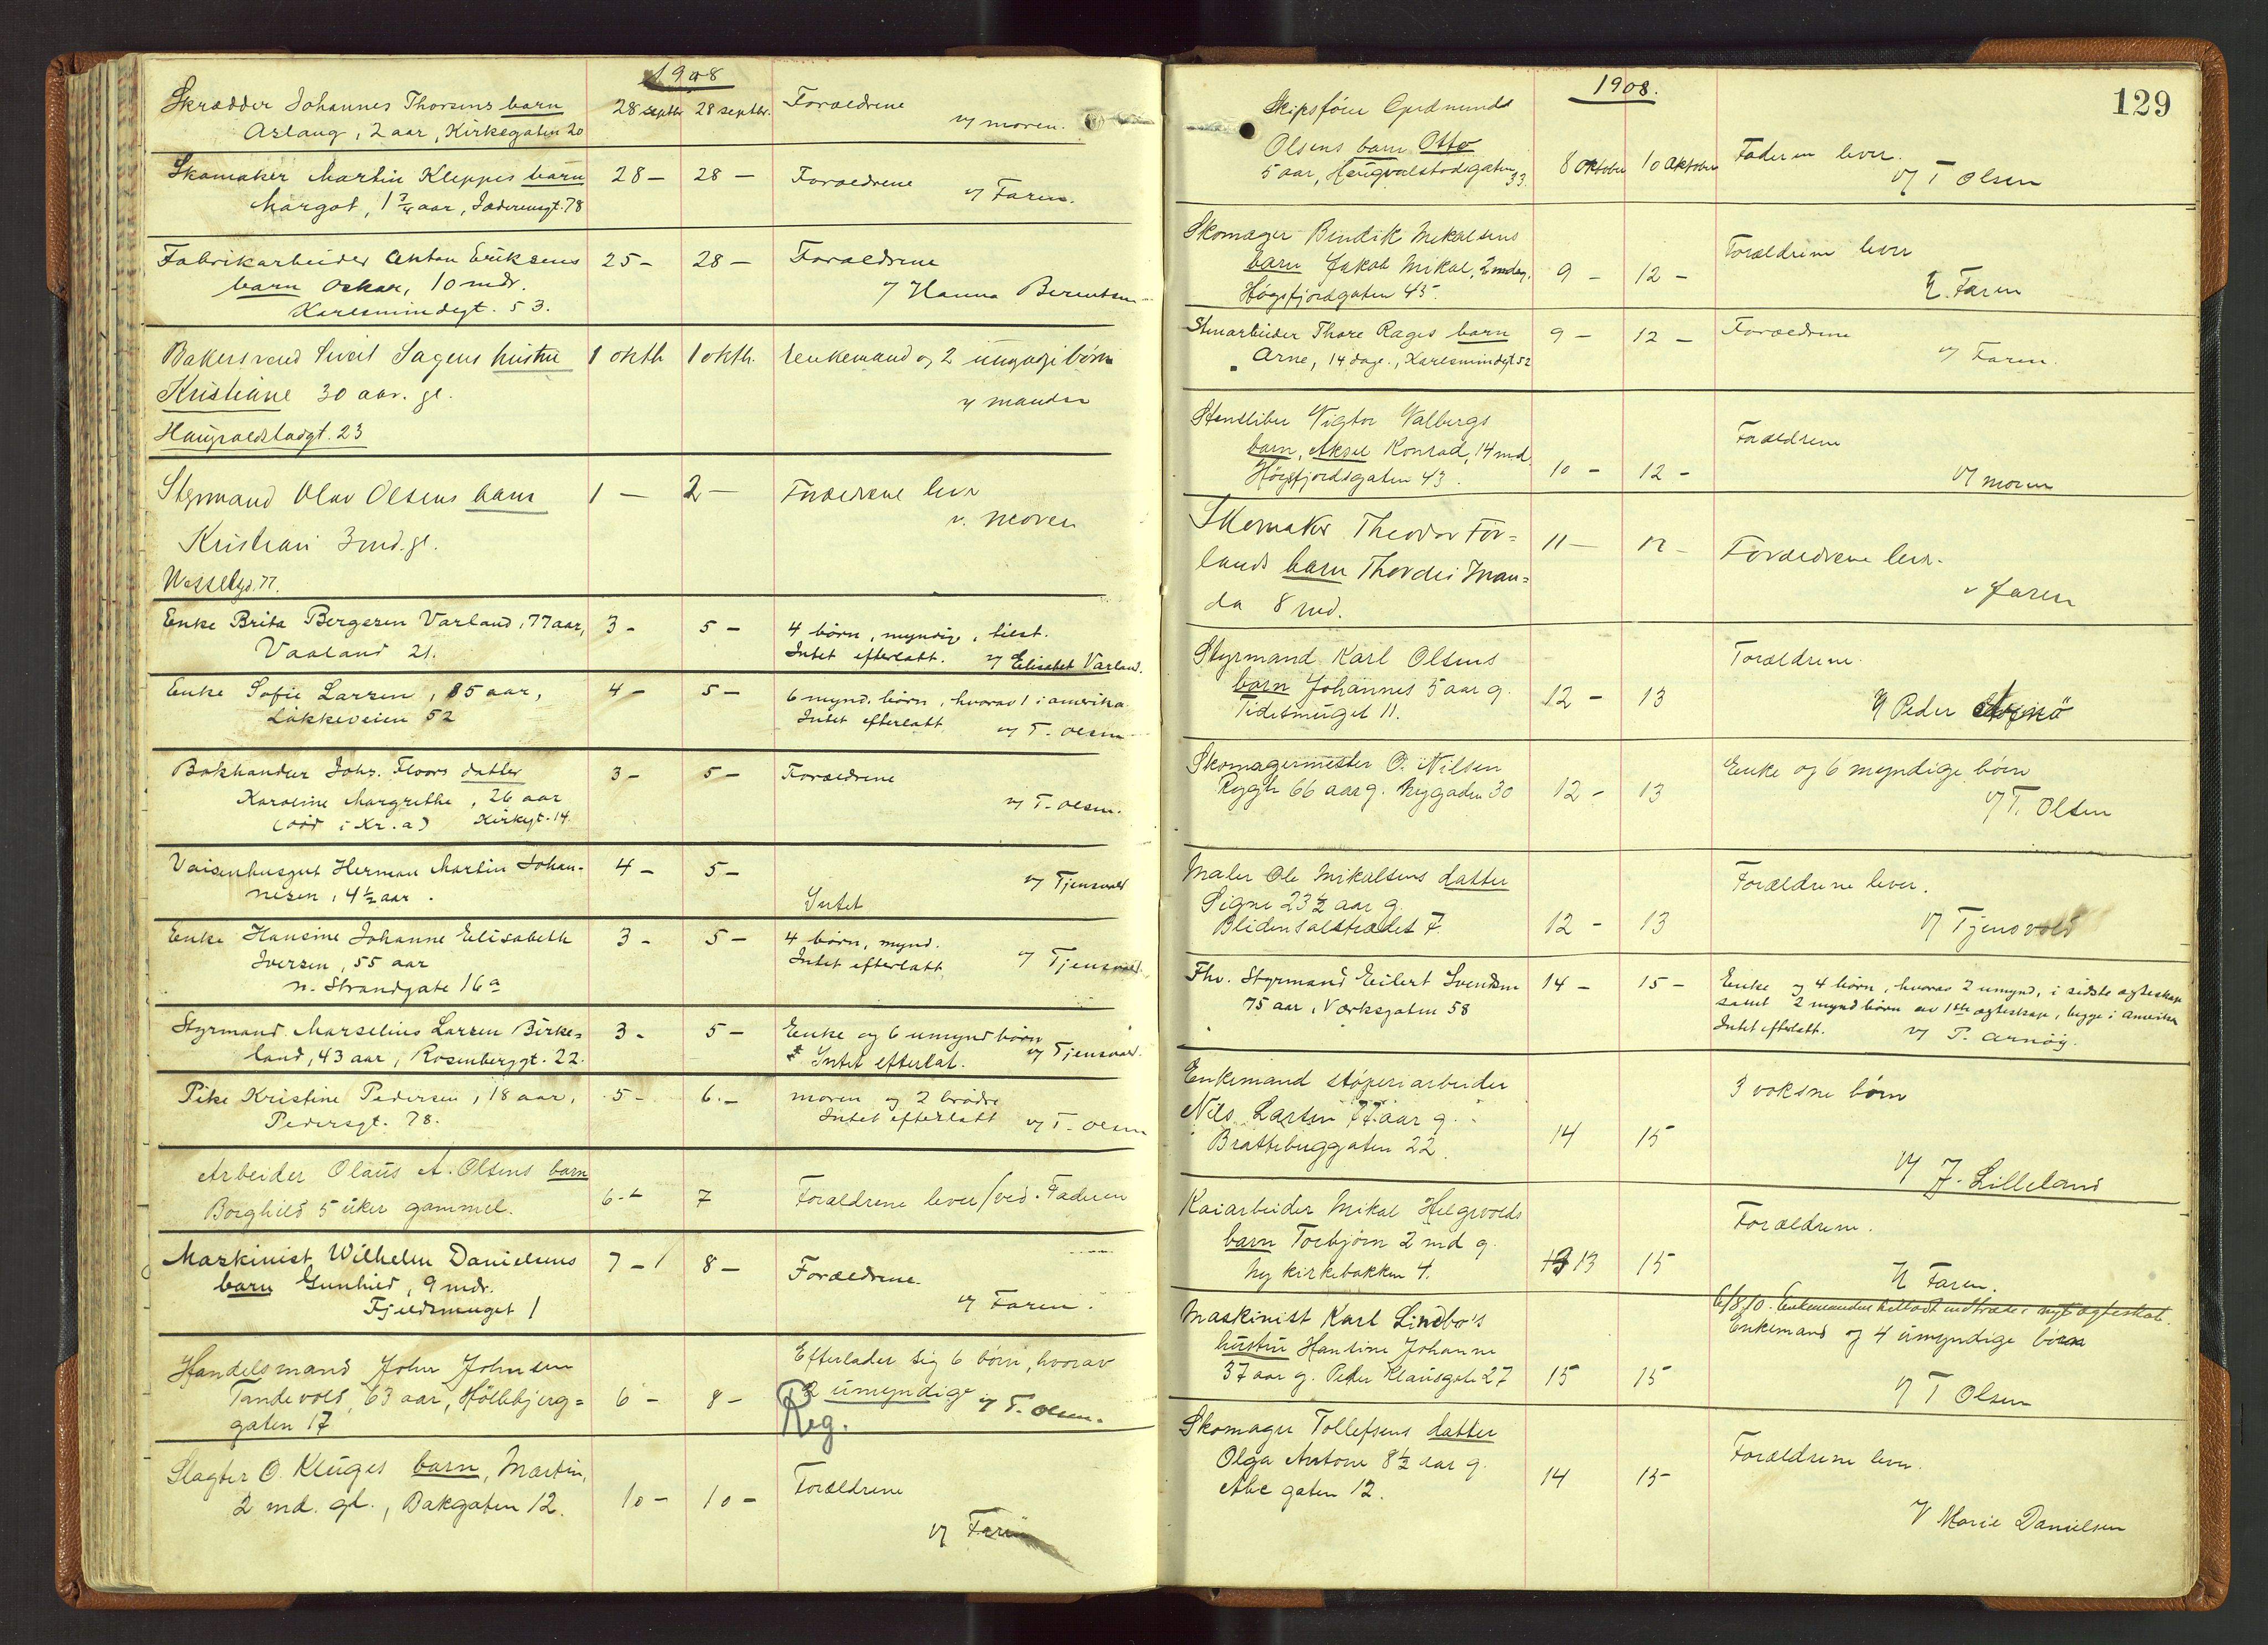 1908
Skrædder Johannes Thorsens barn 28 septbr 28 septbr. Forældrene
Aslaug, 2 aar, Kirkegaten 20 v/ moren.
Skomaker Martin Kleppes barn 28 — 28 — Forældrene
Margot, 1 3/4 aar, Jæderensgt. 78 v/ Faren.
Fabrikarbeider Anton Eriksens 25 — 28 — Forældrene
barn Oskar, 10 mdr. v/ Hanna Berentsen
Karlsmindegt. 53.
Bakersvend Sivert Sagens hustru 1 oktb 1 oktb. Enkemand og 2 umyndige børn
Kristiane 30 aar. gl. v/ manden
Haugvaldstadgt. 23
Styrmand Olav Olsens barn 1 — 2 — Forældrene lever
Kristian 3 md. gl. v. moren
Wesselsgd. 77.
Enke Brita Bergesen Varland, 77 aar, 3 - 5 — 4 børn, myndige, tilst.
Vaaland 21. Intet efterlatt. v/ Elisabet Varland.
Enke Sofie Larsen, 85 aar, 4 - 5 — 6 mynd. børn, hvorav 1 i amerika
Løkkeveien 52 Intet efterlatt v/ T. Olsen
Bokhandler Johs. Floors datter 3 - 5 — Forældrene
Karoline Margrethe, 26 aar v/ T. Olsen.
(død i Kr.a) Kirkegt. 14.
Vaisenhusgut Herman Martin Johan- 4 - 5 — v/ Tjensvold
nesen, 4 1/2 aar. Intet
Enke Hansine Johanne Elisabeth 3 - 5 — 4 børn, mynd.
Iversen, 55 aar Intet efterlatt v/ Tjensvold.
n. Strandgate 16 a
Styrmand Marselius Larsen Birke- 3 - 5 — Enke og 6 umynd børn
land, 43 aar, Rosenberggt. 22. Intet efterlat. v/ Tjensvold.
Pike Kristine Pedersen, 18 aar, 5 - 6. — moren og 2 brødre
Pedersgt. 78. Intet efterlatt v/ T. Olsen
Arbeider Olaus A. Olsens barn
Borghild 5 uker gammel. 6 - 7 Forældrene lever / ved. Faderen
Maskinist Wilhelm Danielsens 7 — 8 — Forældrene.
barn Gunhild, 9 mdr. v/ Faren.
Fjeldsmuget 1
Handelsmand John Johnsen Efterlader sig 6 børn, hvorav
Tandevold, 63 aar, Hølebjerg= 6 — 8 — 2 umyndige v/ T. Olsen.
gaten 17 Reg.
Slagter O. Kluges barn, Martin, Forældrene
2 md. gl., Bakgaten 12. 10 — 10 — v/ Faren
1908. 129
Skipsfører Gudmunds
Olsens barn Otto Faderen lever.
5 aar, Haugvaldstadsgaten 33. 8 Oktober 10 Oktober v/ T Olsen
Skomager Bendik Mikalsens Forældrene lever
barn Jakob Mikal, 2 mdr. 9 — 12 —
Høgsfjordgaten 45. v. Faren
Stenarbeider Thore Rages barn 9 — 12 — Forældrene
Arne, 14 dage., Karlsmindegt 52 v/ Faren.
Stensliber Vigtor Valbergs Forældrene
barn, Aksel Konrad, 14 md.
Høgsfjordsgaten 43. 10 — 12 — v/ moren
Skomaker Theodor Før= 11 — 12 — Forældrene lever.
lands barn Thordis Iman= v Faren
da 8 md.
Styrmand Karl Olsens Forældrene.
barn Johannes 5 aar g. 12 — 13 v/ Peder Arnø
Tidesmuget 11.
Skomagermester O. Nilsen Enke og 6 myndige børn
Rygg 66 aar g. Nygaden 30 12 — 13 v/ T. Olsen
Maler Ole Mikalsens datter Forældrene lever.
Signe 23 1/2 aar g.
Blidensolstrædet 7. 12 — 13 v/ Tjensvold
Fhv. Styrmand Eilert Svendsen 14 — 15 — Enke og 4 børn, hvorav 2 umynd, i sidste egteskap
75 aar, Verksgaten 58 samt 2 mynd børn av 1ste egteskap, begge i Amerika
Intet efterlatt. v/ P. Arnøy.
Enkemand støperiarbeider 3 voksne børn
Nils Larsen 77 aar g.
Brattebuggaten 22. 14 15 v/ J. Lilleland
Kaiarbeider Mikal Helgevolds Forældrene.
barn Torbjørn 2 md g.
Ny kirkebakken 4. 13 15 v/ Faren.
6/8 10. Enkemanden indtræde i nyt egteskab.
Maskinist Karl Lindbo's Enkemand og 4 umyndige børn
hustru Hansine Johanne
37 aar g. Peder Klausgate 27 15 15 v/ T Olsen
Skomager Tollefsens datter Forældrene lever.
Olga Antone 8 1/2 aar g. 14 15 —
Abc gaten 12. v/ Marie Danielsen